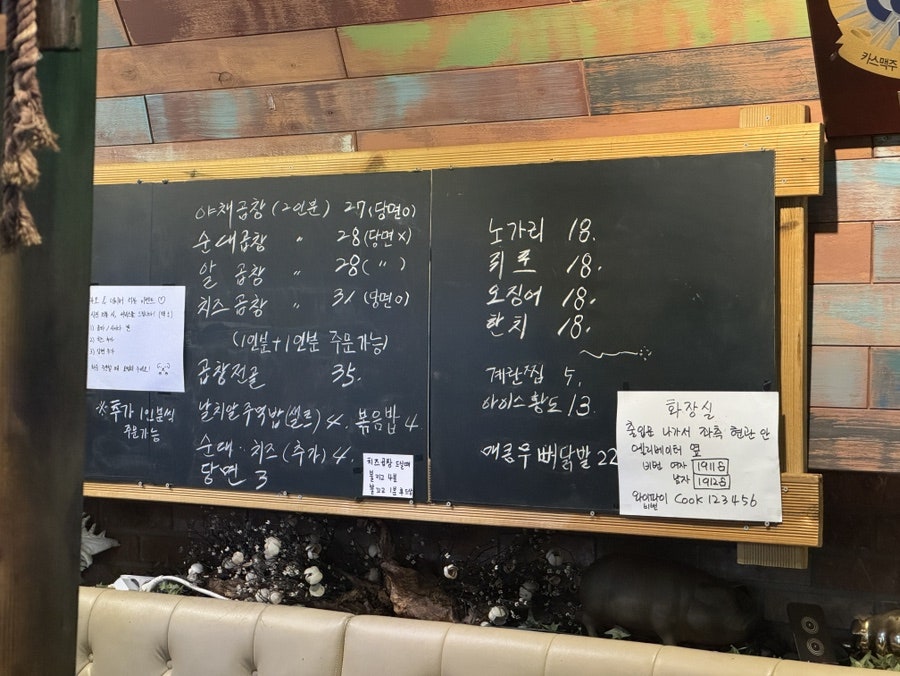 카스맥주
야채곱창 (2인분) 27 (당면o)
순대곱창 〃 28 (당면x)
알 곱창 〃 28 ( 〃 )
치즈곱창 〃 31 (당면o)
(1인분+1인분 주문가능)
곱창전골 35.
날치알주먹밥(셀프) 4. 볶음밥 4
순대·치즈 (추가) 4.
당면 3
※추가 1인분씩
주문가능
1)
2)
3)
치즈곱창 드실때
불끄고 1분 후 드실
노가리 18.
쥐포 18.
오징어 18.
한치 18.
계란찜 5.
아이스황도 13.
매콤무뼈닭발 22
화장실
출입문 나가서 좌측 현관 안
엘리베이터 옆
비번 여자 1911호
남자 1912호
와이파이 Cook123456
비번